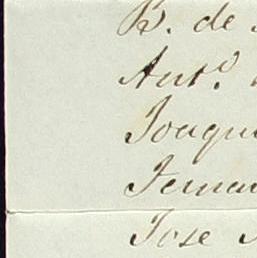 B. de
Ant.º
Joaqu
Fernan
Jose